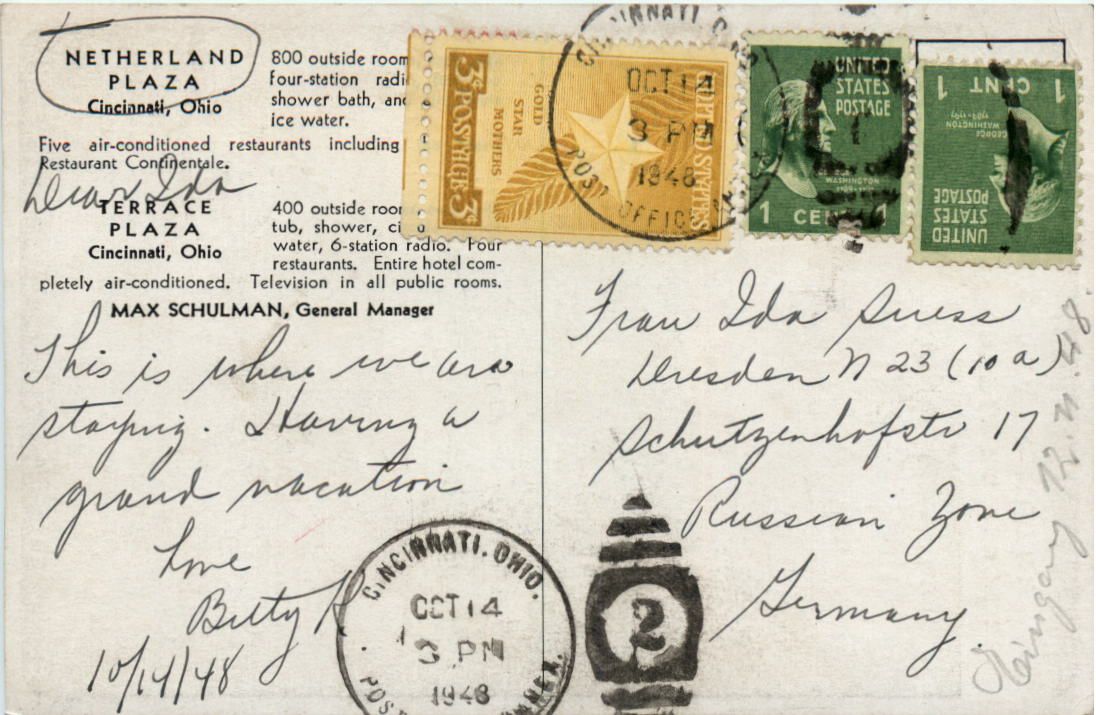 NETHERLAND
PLAZA
Cincinnati, Ohio
800 outside room
four-station radi
shower bath, and
ice water.
Five air-conditioned restaurants including
Restaurant Continentale.
Dear Ida
TERRACE
PLAZA
Cincinnati, Ohio
400 outside roo
tub, shower, ci
water, 6-station radio. Four
restaurants. Entire hotel com-
pletely air-conditioned. Television in all public rooms.
MAX SCHULMAN, General Manager
This is where we are
staying. Having a
grand vacation
Love
Betty
10/14/48
CINCINNATI, OHIO.
OCT 14
3 PM
1948
POST ANNEX.
2
3¢ POSTAGE 3¢
GOLD
STAR
MOTHERS
UNITED STATES
CINNATI, O
OCT 14
3 PM
1948
POST OFFICE
UNITED
STATES
POSTAGE
WASHINGTON
1789-1797
1 CENT 1
UNITED
STATES
POSTAGE
GEORGE
WASHINGTON
1789-1797
1 CENT 1
Frau Ida Suess
Dresden N 23 (10a)
Schutzenhofstr 17
Russian Zone
Germany
48